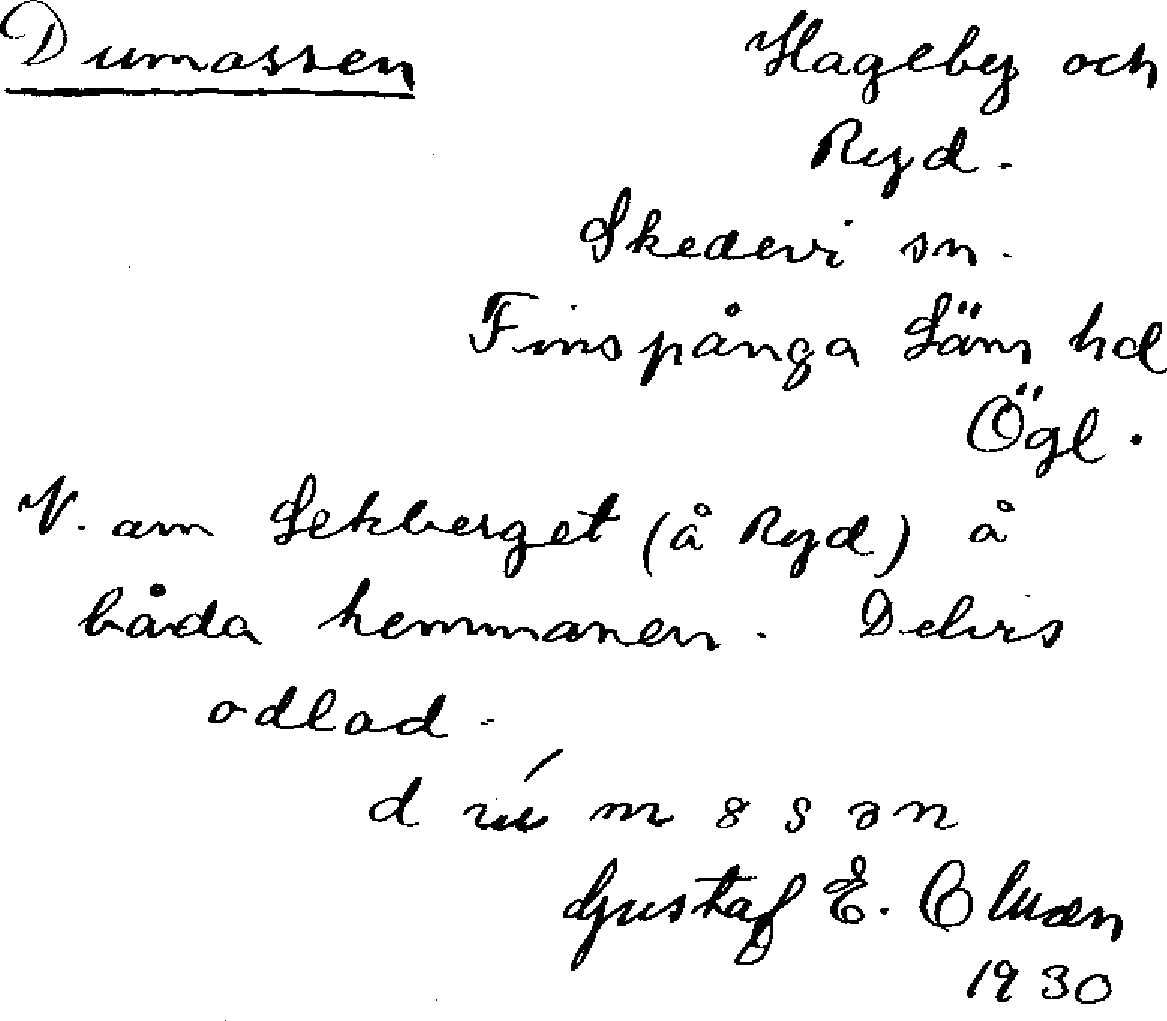 Dumossen Hageby och
Ryd.
Skedevi sn.
Finspånga Läns hd
Ögl.
V. om Lekberget (å Ryd) å
båda hemmanen. Delvis
odlad.
Gustaf E.
1930